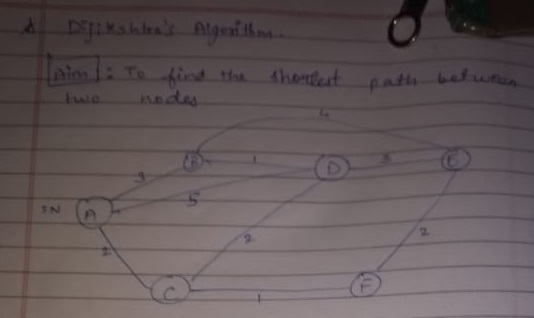 Dijikshtra's Algorithm.
[Aim]: To find the shortest path between
two nodes
4
B 1 D 3 E
3
5
SN A
2 2 2
C 1 F